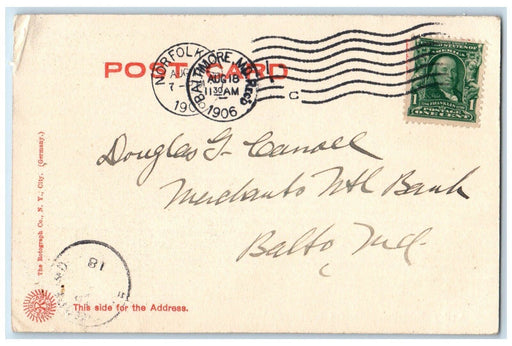 POST CARD
NORFOLK
AU
7-
190
BALTIMORE, MD. REC'D
AUG 18
11 30 AM
1906
C
1
FRANKLIN
POSTAGE
ONE CENT
Douglas G. Carroll
Merchants Ntl Bank
Balto, Md.
The Rotograph Co., N. Y., City. (Germany.)
18
This side for the Address.